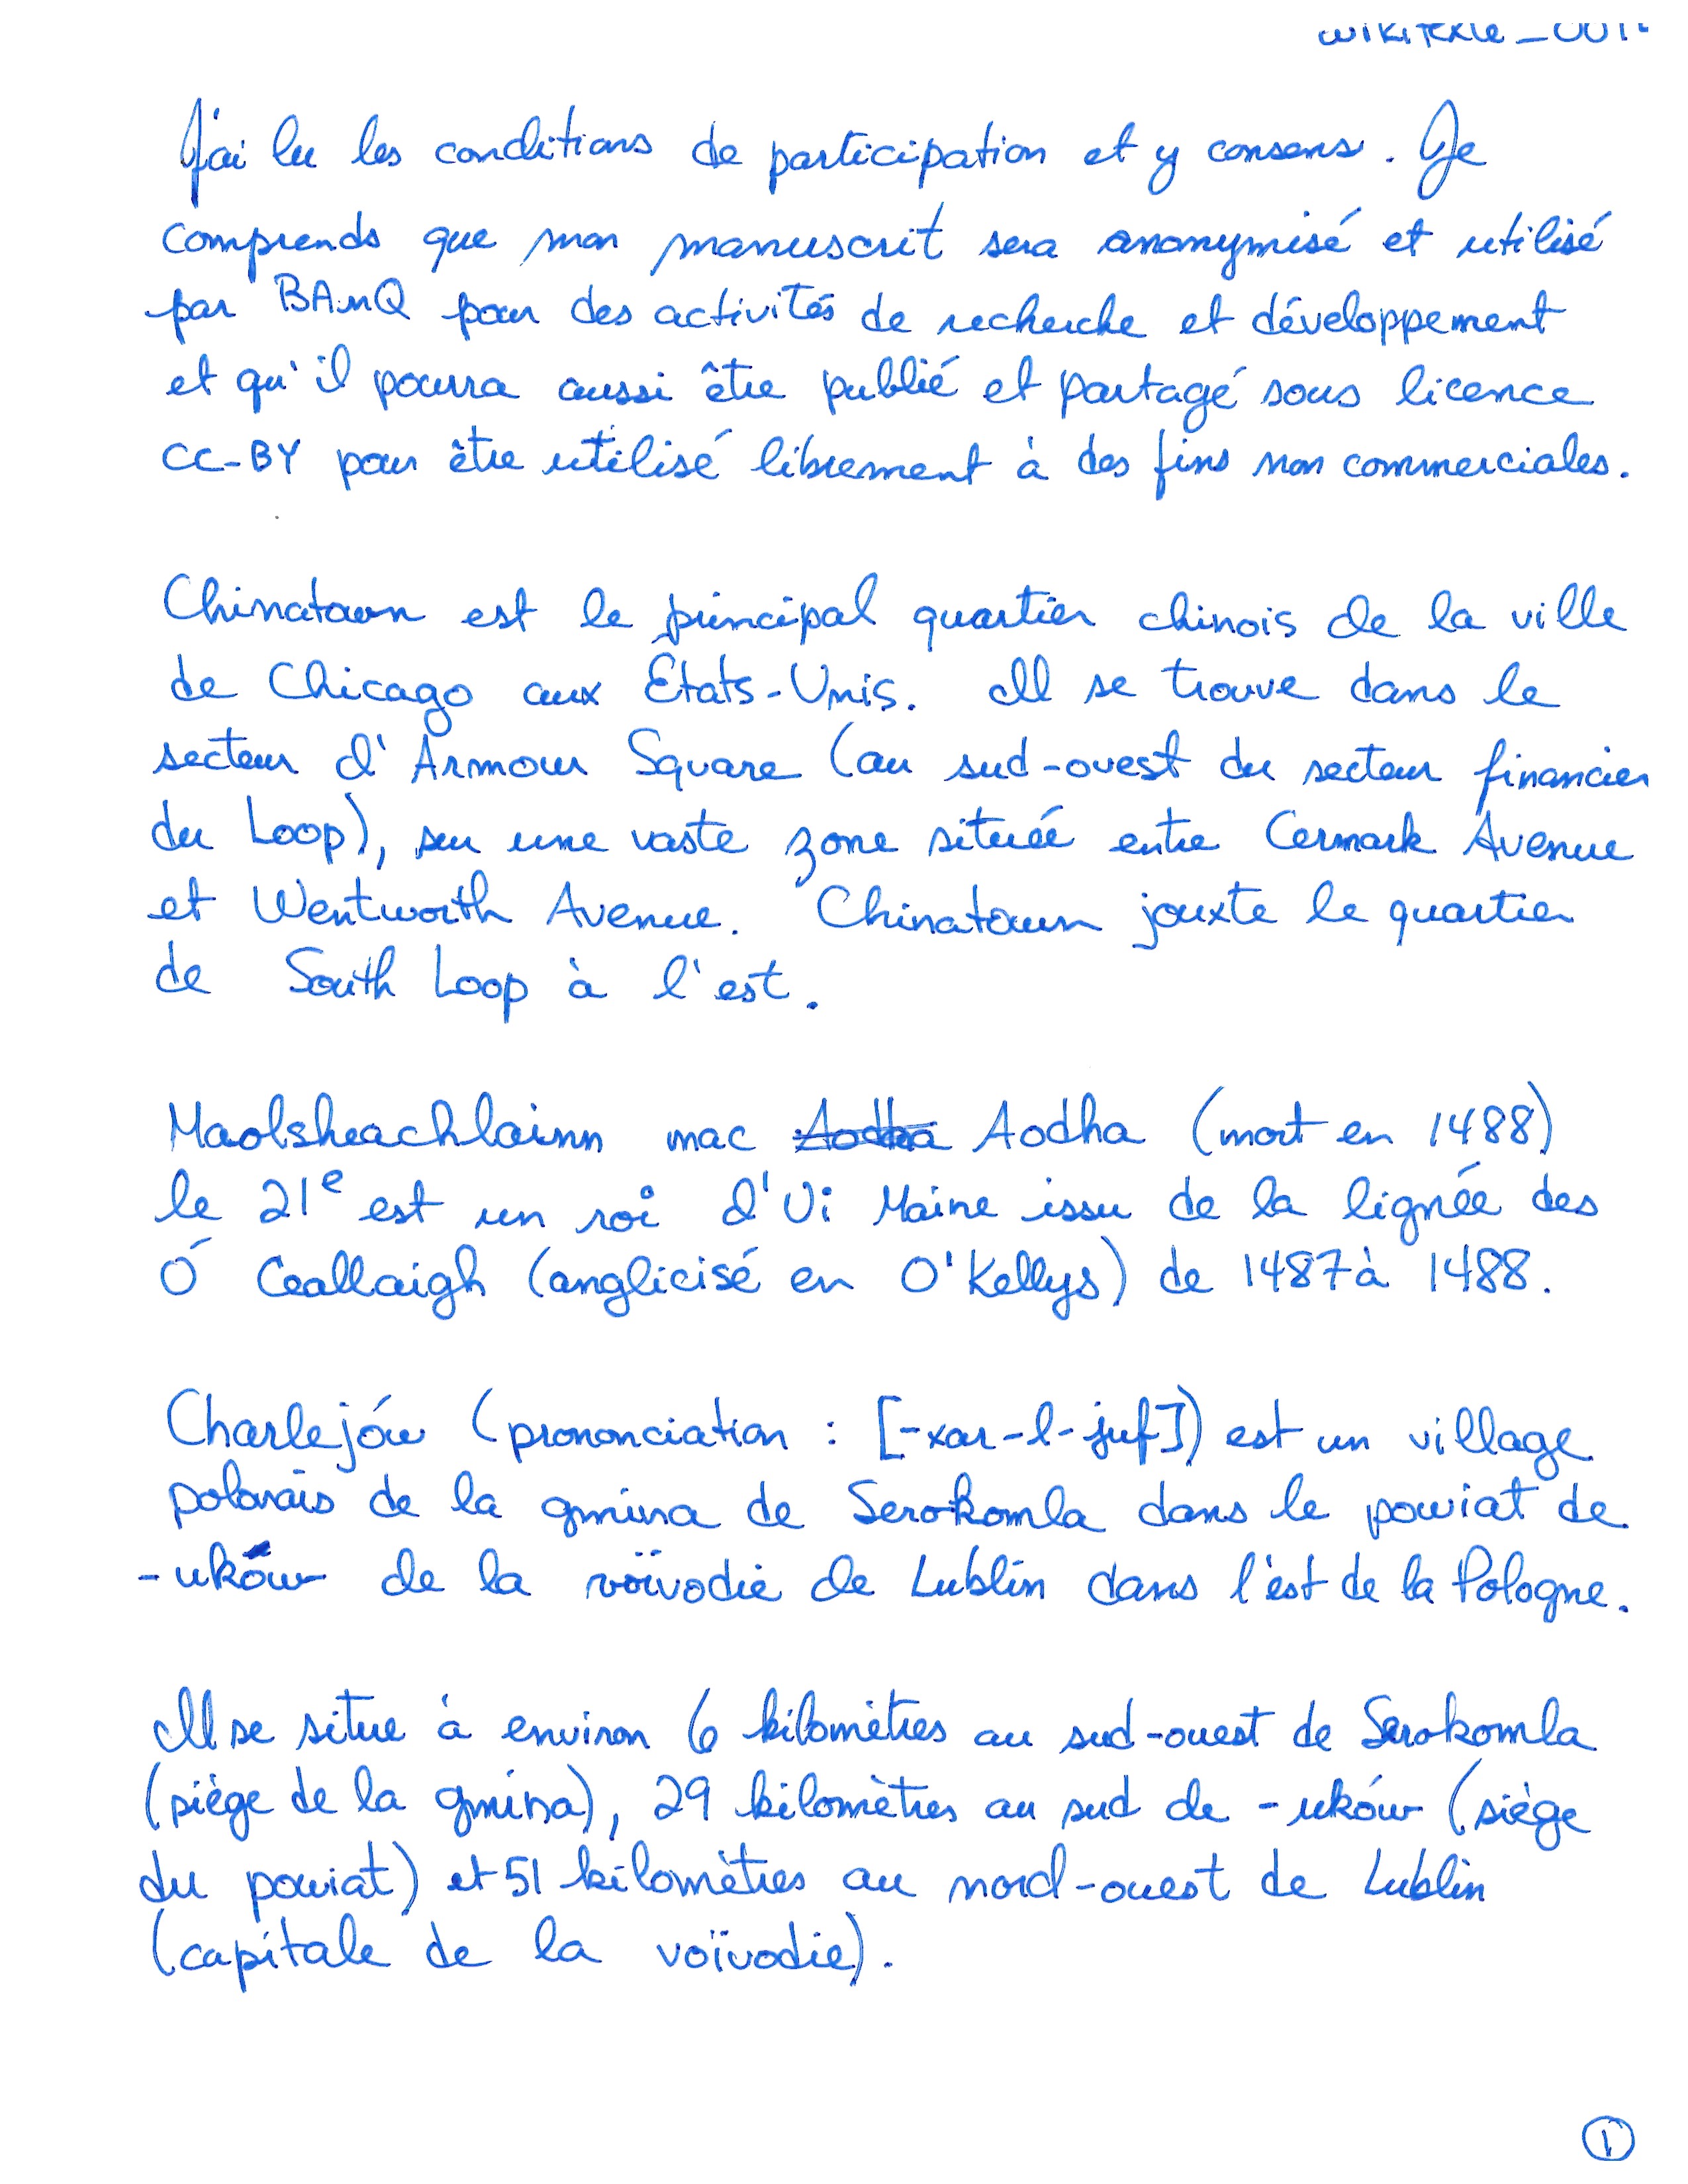 J'ai lu les conditions de participation et y consens. Je
comprends que mon manuscrit sera anonymisé et utilisé
par BAnQ pour des activités de recherche et développement
et qu'il pourra aussi être publié et partagé sous licence
CC-BY pour être utilisé librement à des fins non commerciales.
Chinatown est le principal quartier chinois de la ville
de Chicago aux États-Unis. Il se trouve dans le
secteur d'Armour Square (au sud-ouest du secteur financier
du Loop), sur une vaste zone située entre Cermark Avenue
et Wentworth Avenue. Chinatown jouxte le quartier
de South Loop à l'est.
Maolsheachlainn mac Aodha Aodha (mort en 1488)
le 21e est un roi d'Ui Maine issu de la lignée des
Ó Ceallaigh (anglicisé en O'Kellys) de 1487 à 1488.
Charlejów (prononciation : [-xar-l-juf]) est un village
polonais de la gmina de Serokomla dans le powiat de
-uków de la voïvodie de Lublin dans l'est de la Pologne.
Il se situe à environ 6 kilomètres au sud-ouest de Serokomla
(siège de la gmina), 29 kilomètres au sud de -uków (siège
du powiat) et 51 kilomètres au nord-ouest de Lublin
(capitale de la voïvodie).
1